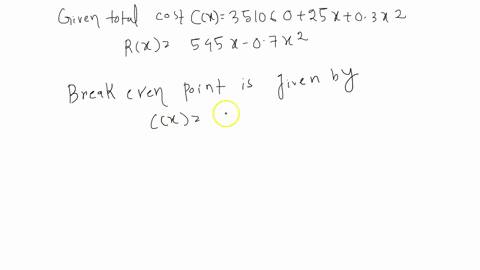 Given total cost C(x)=351060+25x+0.3x2
R(x)= 545x-0.7x2
Break even point is given by
C(x)=